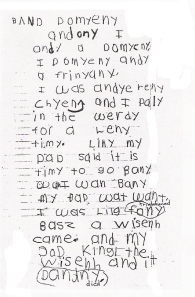 BAND DOMYENY
andony I
andy a Domyeny
I Domyeny andy
a frinyany.
I was andyerehy
chyeng and I pally
in the werdy
for a weny
timy. Liny my
DaD said it is
timy to go Bany
wan Bany
my Dad wat want.
I was (fany)
Base a wisenh
came. and my
Dad kingl the
wisenh and it
(Danny)